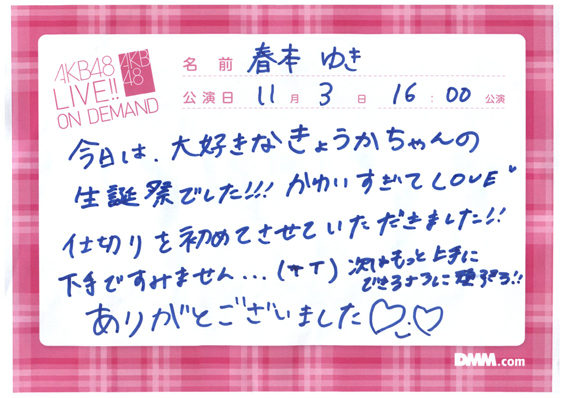 AKB48
LIVE!!
ON DEMAND
AKB
48
名前 春本 ゆき
公演日 11月 3日 16:00公演
今日は、大好きなきょうかちゃんの
生誕祭でした!!! かわいすぎてLOVE♥
仕切りを初めてさせていただきました!!
下手ですみません...(TT)
次はもっと上手に
できるように 頑張ろう!!
ありがとうございました♡♡
DMM.com